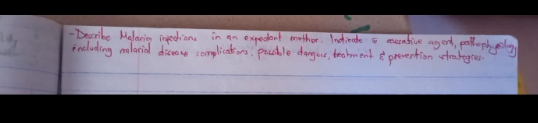 - Describe Malaria infections in an expectant mother. Indicate causative agent, pathophysiology
including malarial disease complications, possible dangers, treatment & prevention strategies.